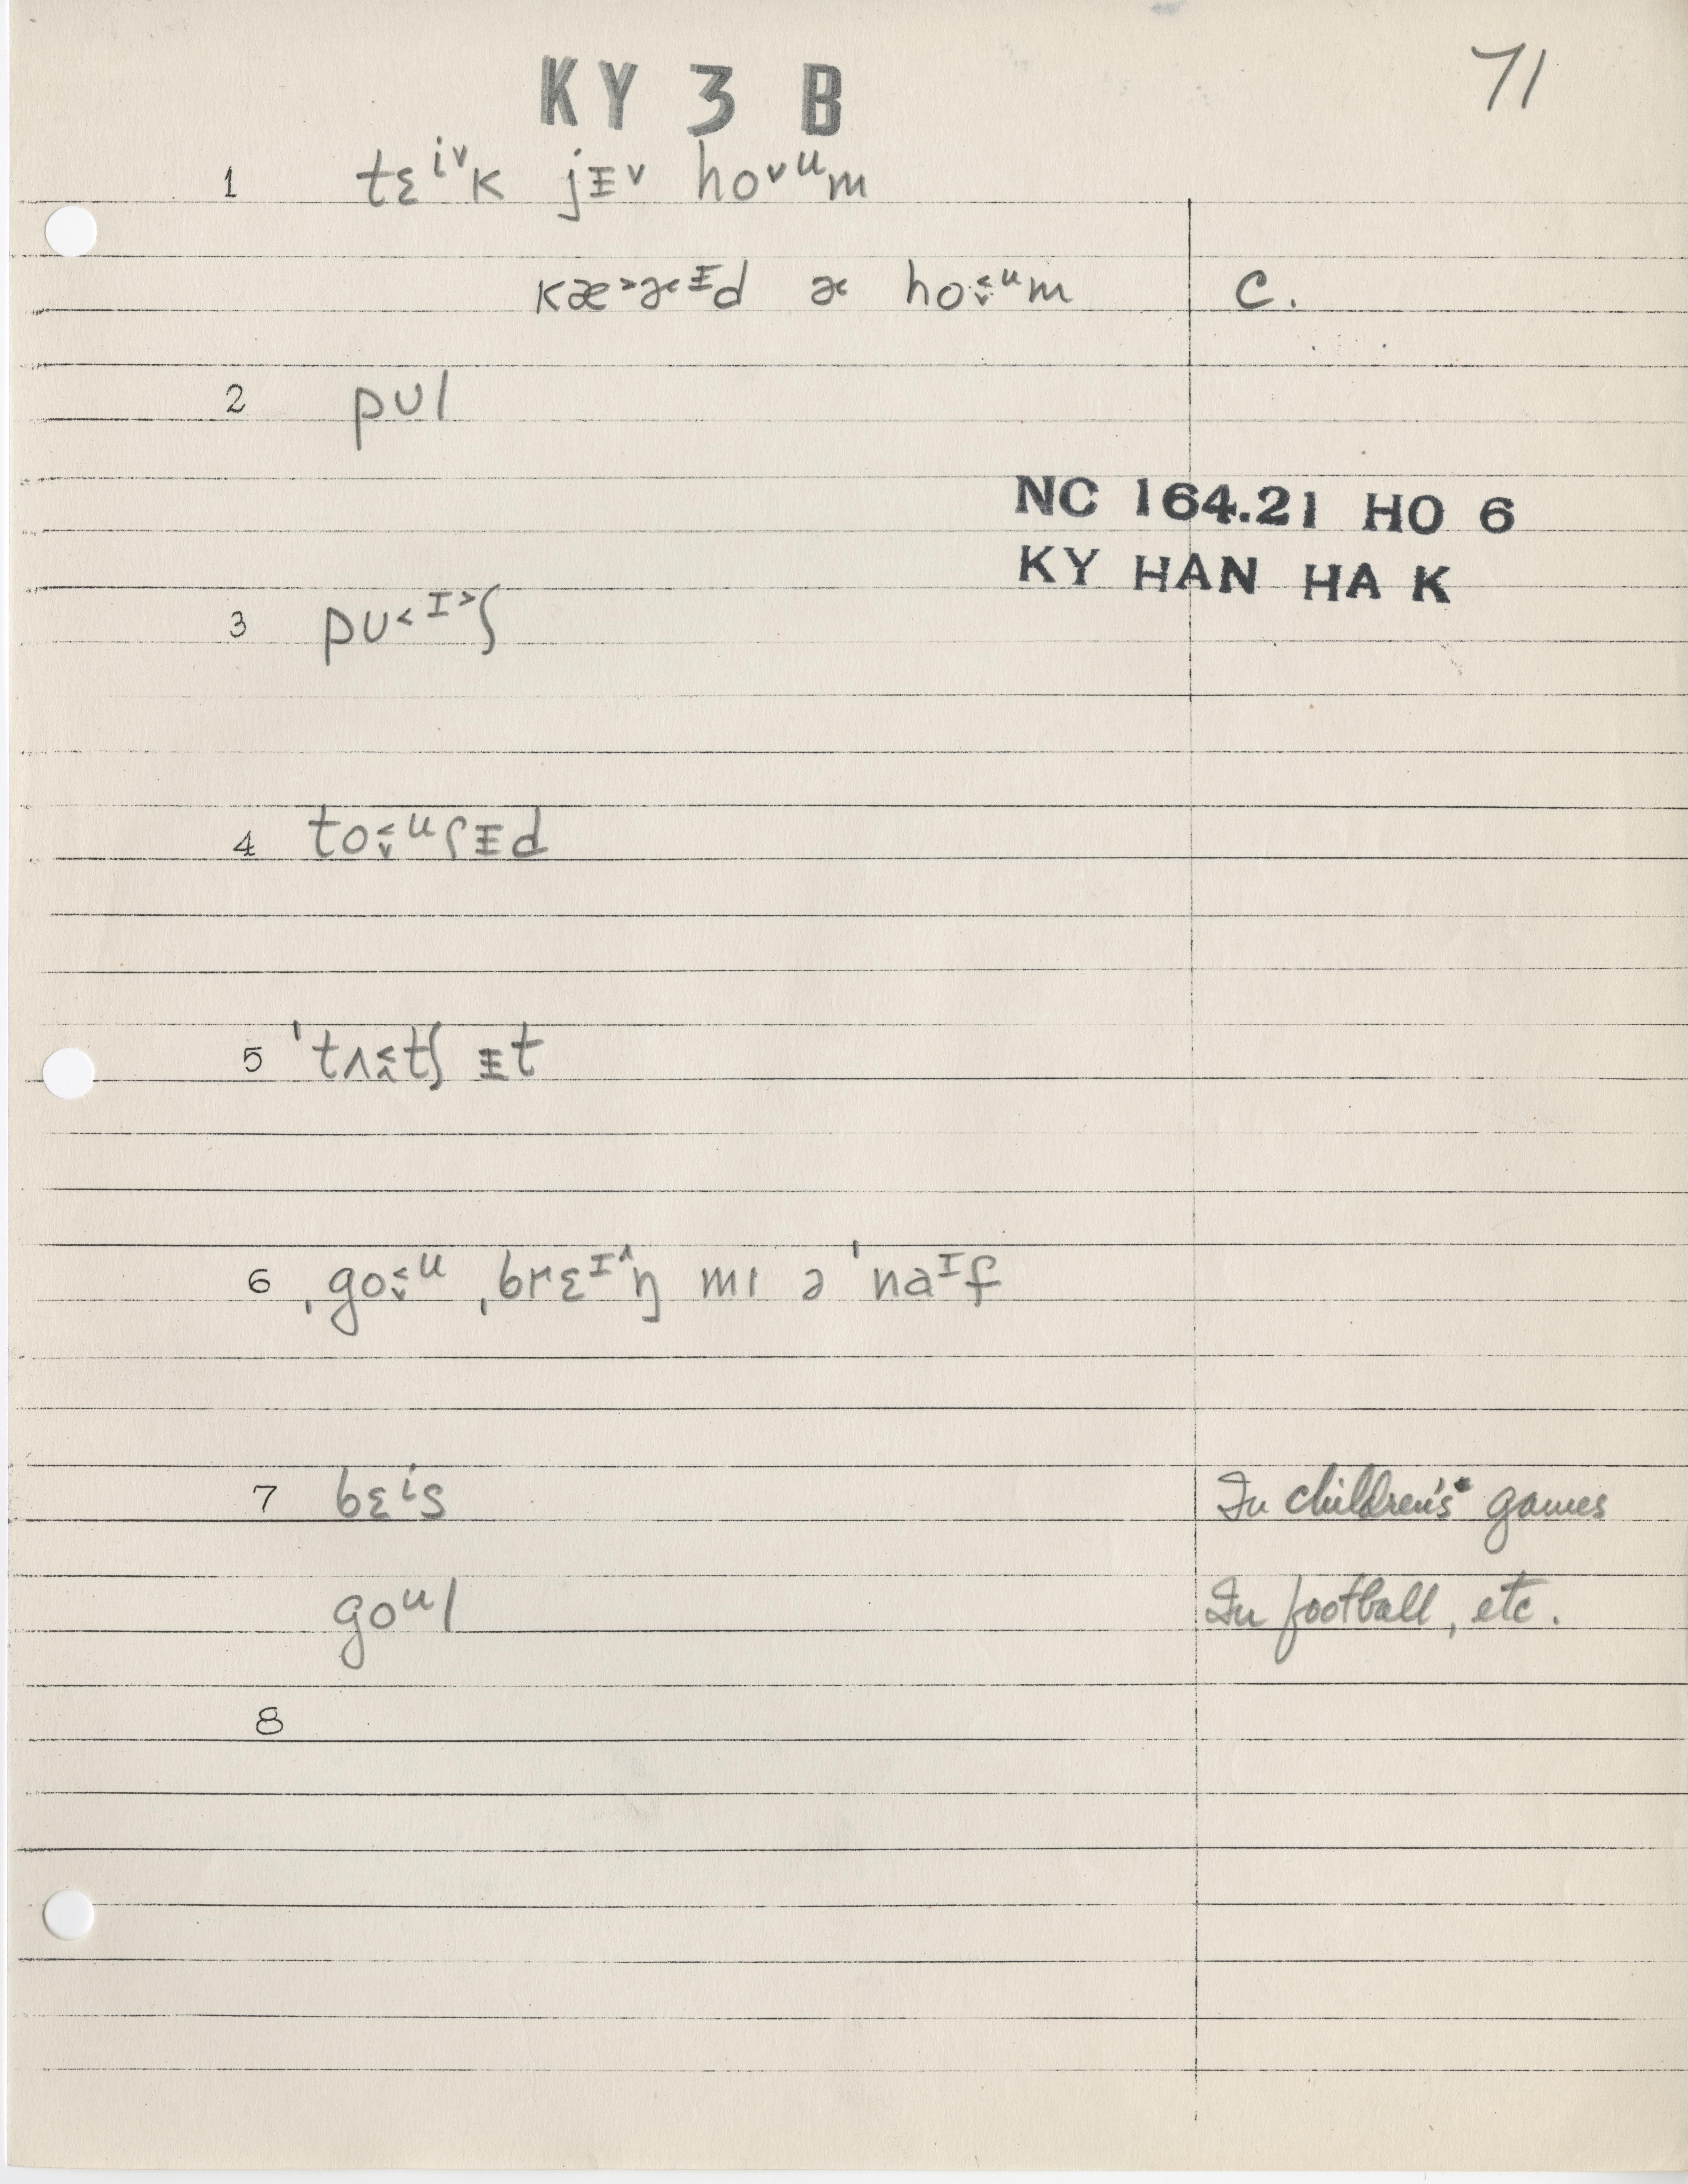 KY 3 B
71
1 tɛⁱ˅k jᵻ˅ ho˅ᵘm
kæ˃ɚᵻd ɚ ho˂˅ᵘm C.
2 pʊl
NC 164.21 HO 6
KY HAN HA K
3 pʊ˂ᶦ˃ʃ
4 to˂˅ᵘtᵻd
5 ˈtʌ˂˄tʃ ᵻt
6 ˌgo˂˅ᵘ ˌbrɛᶦ˄ŋ mɪ ə ˈnaᶦf
7 bɛⁱs In children's games
goᵘl In football, etc.
8